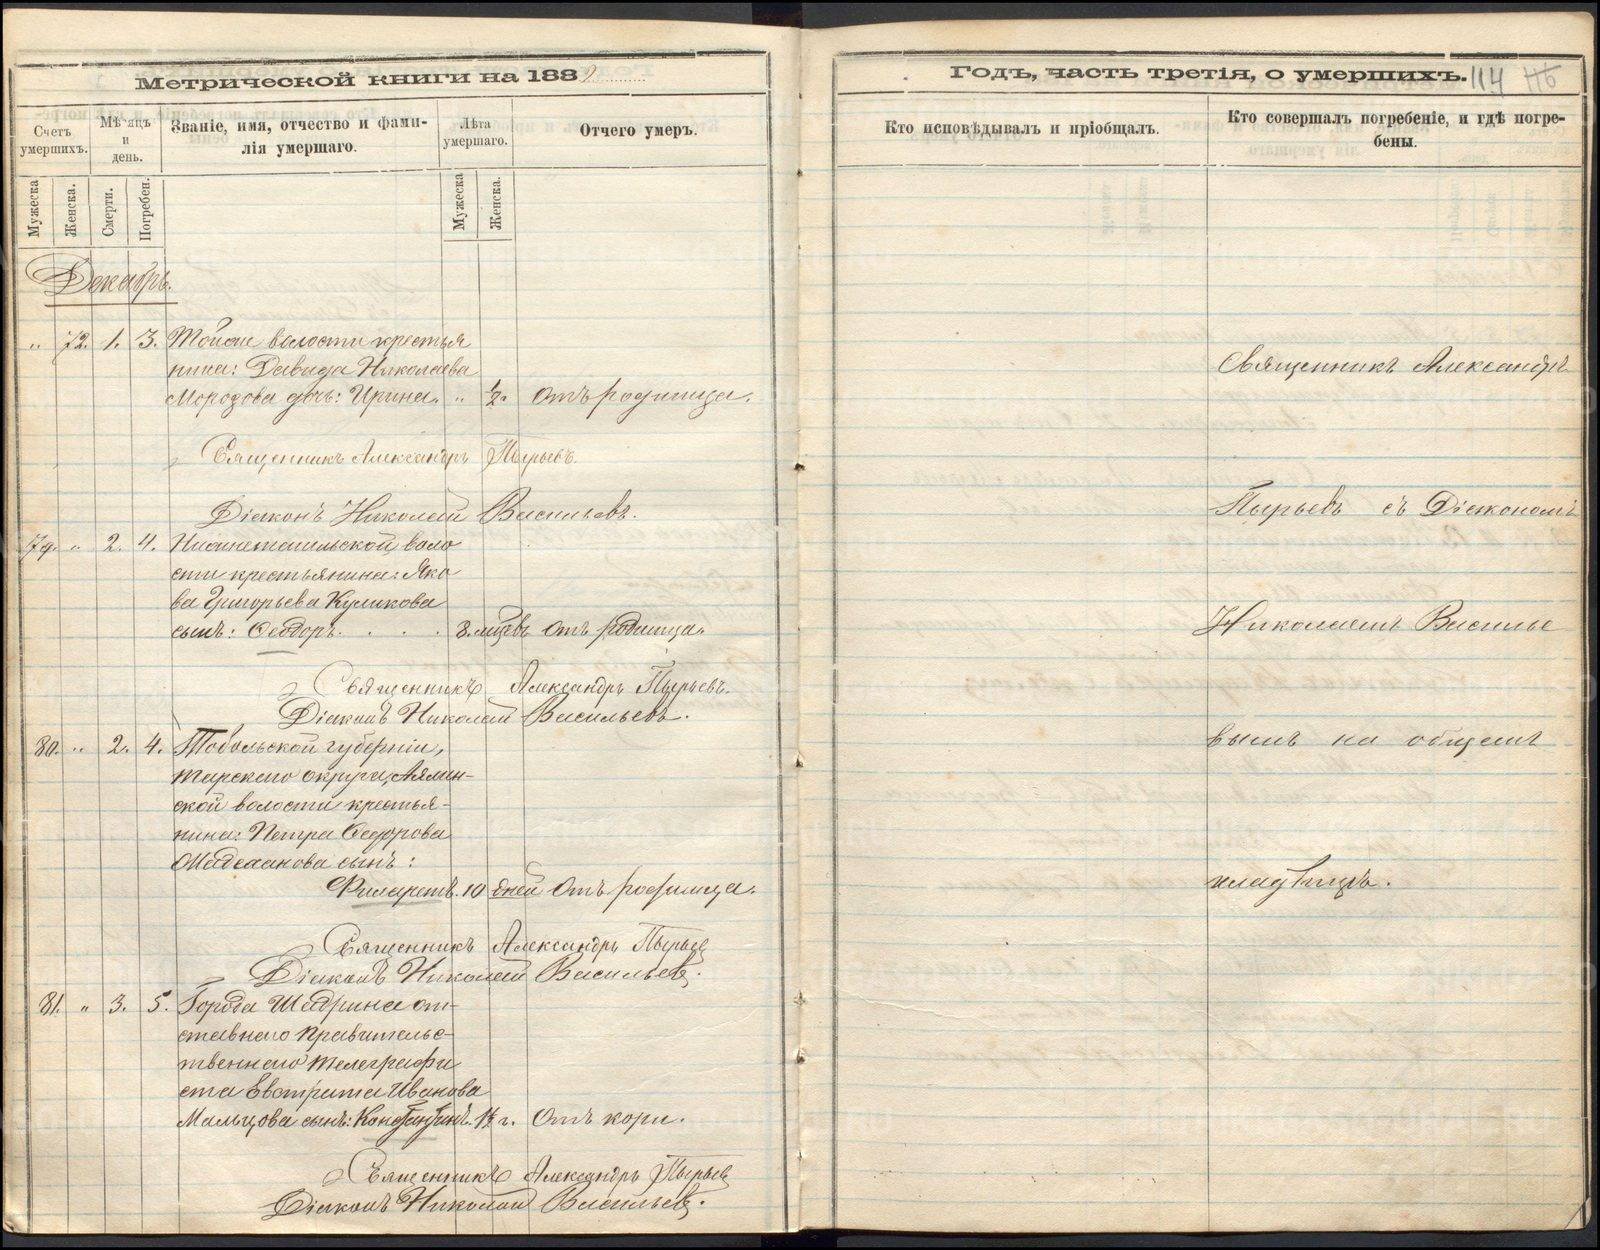 Метрической книги на 1889
Счетъ умершихъ.
Мѣсяцъ и день.
Званіе, имя, отчество и фами-
лія умершаго.
Лѣта умершаго.
Отчего умеръ.
Мужеска
Женска.
Смерти.
Погребен.
Мужеска
Женска.
Декабрь.
„ 72. 1. 3. волости крестья
нина: Давида Николаева
Морозова дочь: Ирина. „ ½. Отъ родимца.
Священникъ Александръ Пырьевъ.
Діаконъ Николай Васильевъ.
79. „ 2. 4. Нижнетагильской воло
сти крестьянина: Яко
ва Григорьева Куликова
сынъ: Ѳеодоръ. . . . 8. мцевъ Отъ родимца.
Священникъ Александръ Пырьевъ.
Діаконъ Николай Васильевъ.
80. „ 2. 4. Тобольской губерніи,
Тарскаго округа, Аялин-
ской волости крестья-
нина: Петра Ѳедорова
сынъ:
Филаретъ. 10 дней Отъ родимца.
Священникъ Александръ Пырьев
Діаконъ Николай Васильев.
81. „ 3. 5. Города Шадрина от-
ставнаго Правительс-
твеннаго Телеграфи
ста Евстрата Иванова
Мальцова сынъ: Константинъ. г. Отъ кори.
Священникъ Александръ Пырьев
Діаконъ Николай Васильев.
Годъ, часть третія, о умершихъ. 114 116
Кто исповѣдывалъ и пріобщалъ.
Кто совершалъ погребеніе, и гдѣ погре-
бены.
Священникъ Александръ
Пырьевъ съ Діакономъ
Николаемъ Василье
вымъ на общемъ
кладбищѣ.